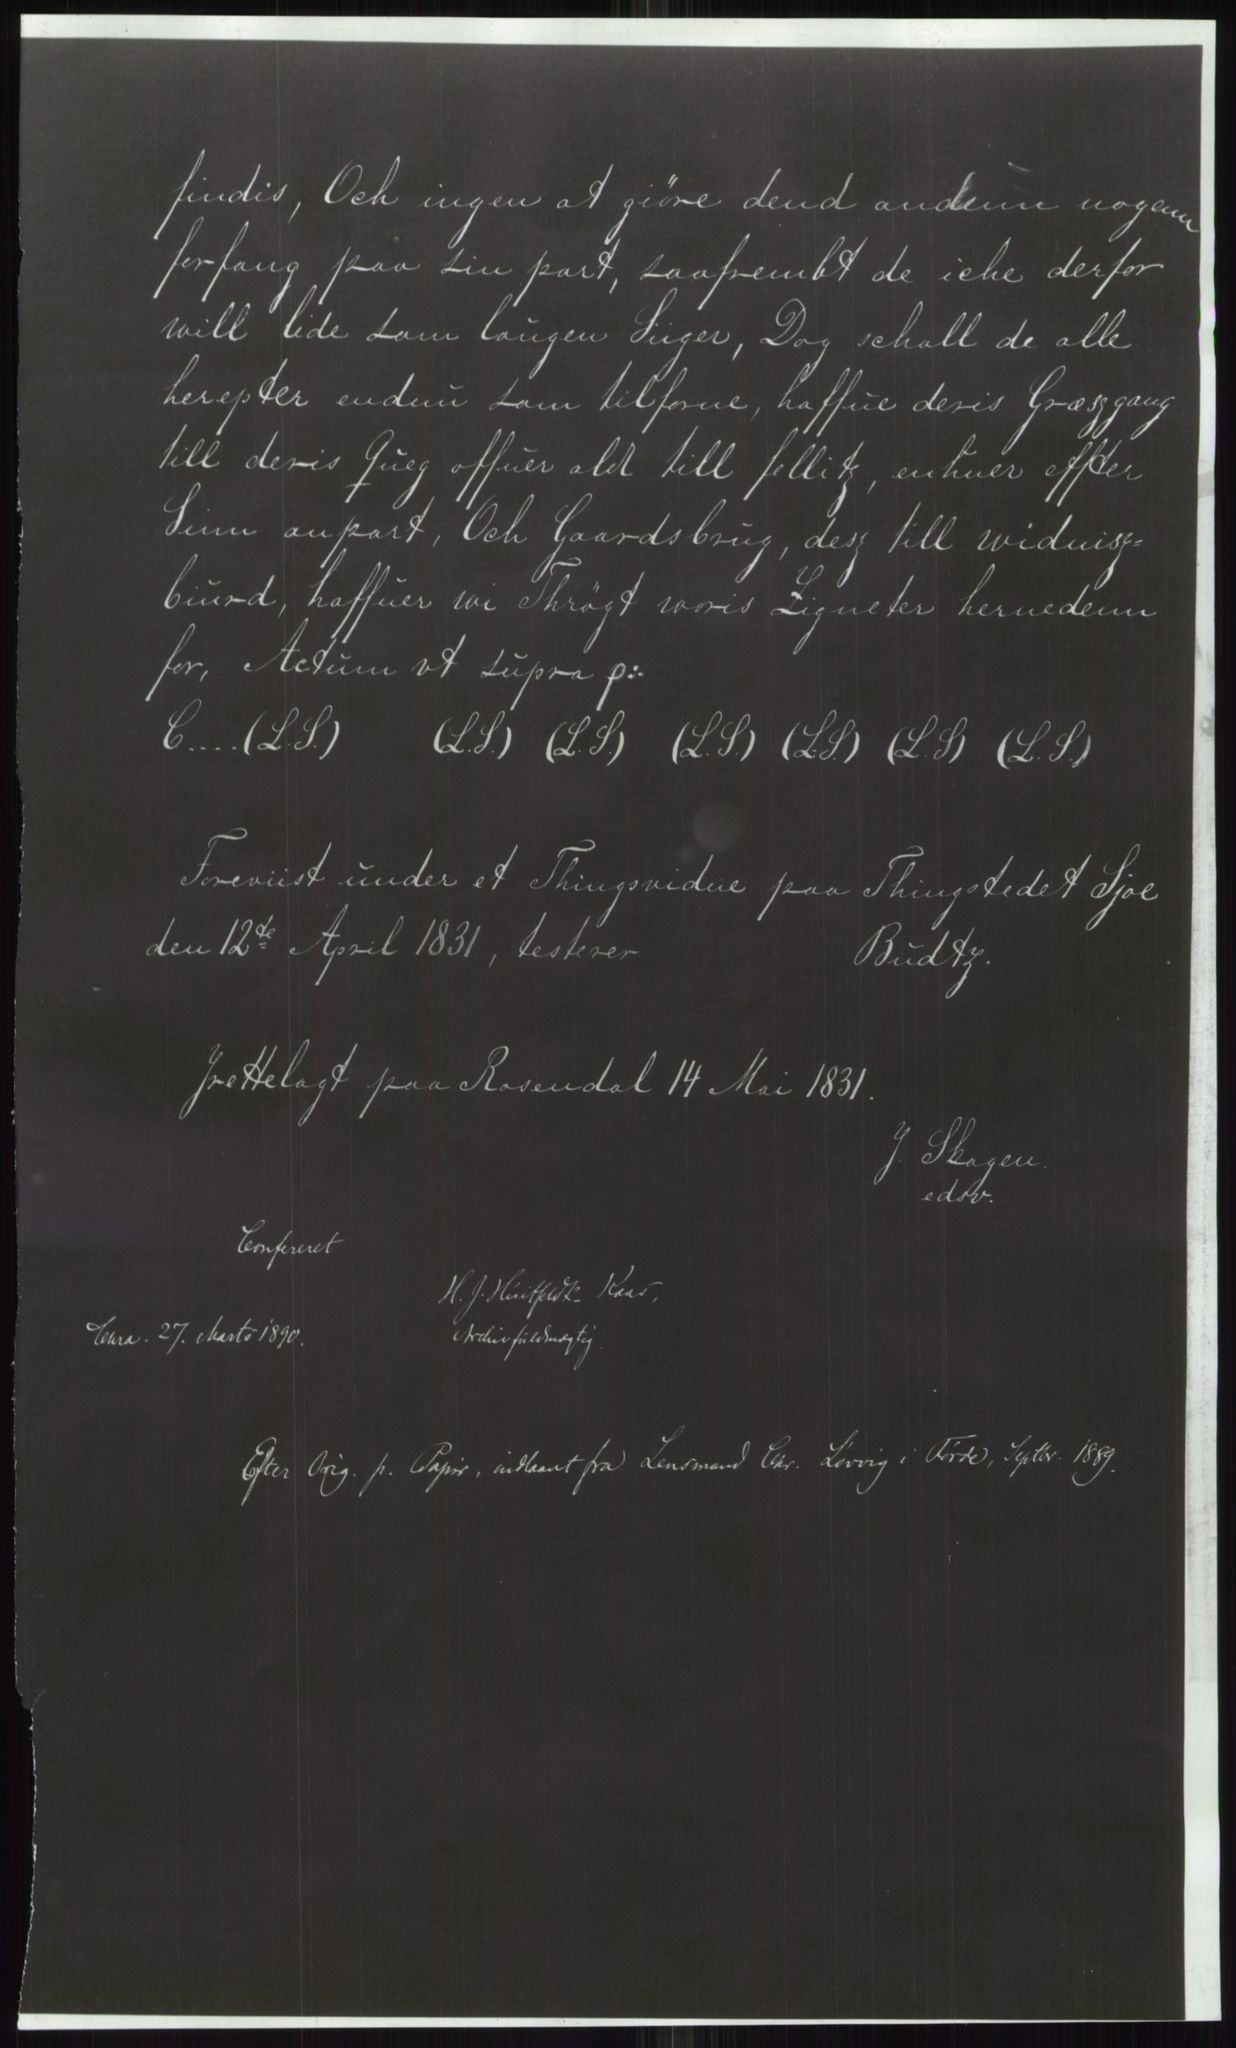 findis, Och ingen at giöre dend andenn nogenn
forfang paa sin part, saafrembt de icke derfor
will lide som lougen Siiger, Dog schall de alle
herepter endnu som tilforne, haffue deris Græszgang
till deris Queg offuer alt till fellitz, enhuer effter
Sinn anpart, Och Gaardsbrug, desz till widnisz-
biurd, haffuer wi Thrögt woris Zigneter hernedenn
for, Actum vt supra p:
C....(L.S.) (L.S.) (L.S.) (L.S.) (L.S.) (L.S) (L.S.)
Foreviist under et Thingsvidne paa Thingstedet Sjoe
den 12te April 1831, testerer Budtz.
Irettelagt paa Rosendal 14 Mai 1831.
J. Skagen.
edsv.
Confereret
H. J. Huitfeldt-Kaas,
Chra. 27. Marts 1890. Archivfuldmægtig.
Efter Orig. p. Papir, indlaant fra Lensmand Chr. Løvvig i Førde, Septbr. 1889.